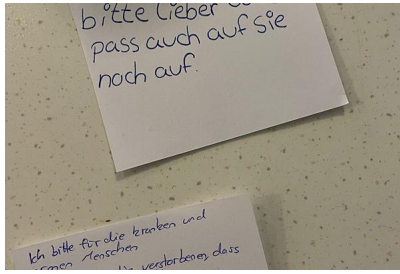 bitte lieber
pass auch auf sie
noch auf.
Ich bitte für die kranken und
Menschen
verstorbenen, dass